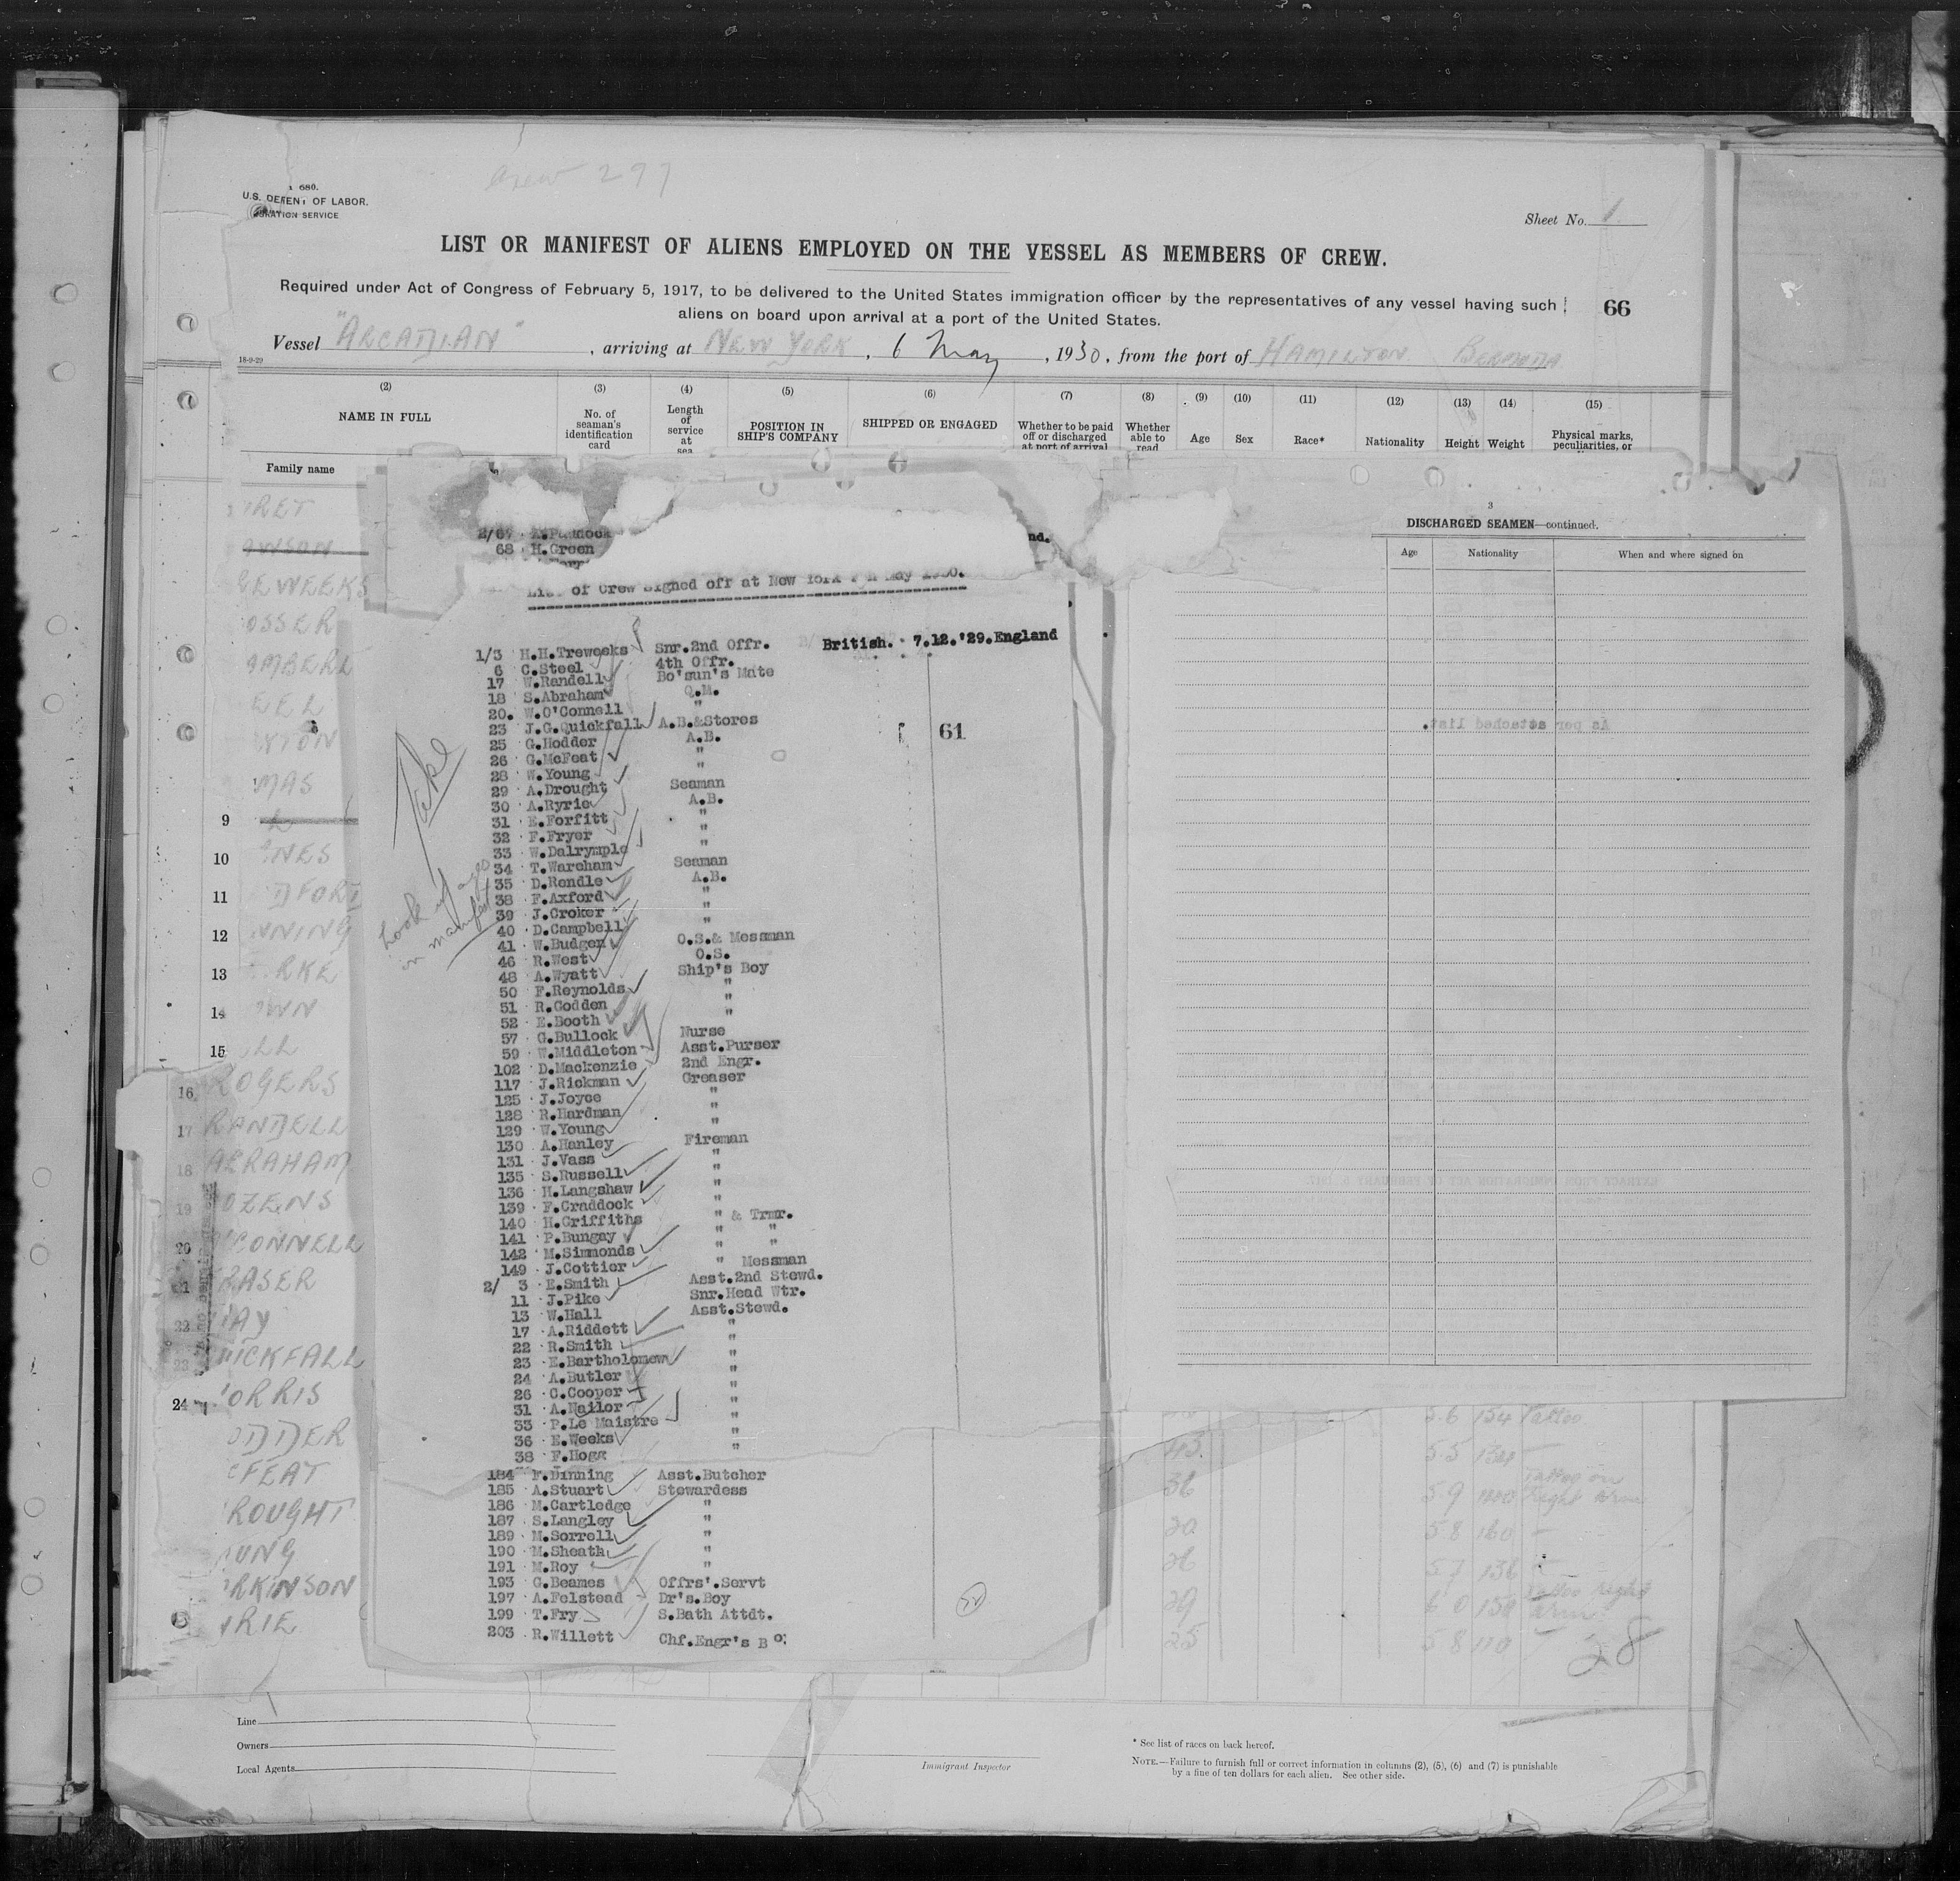 Crew 297
680.
U.S. OF LABOR.
SERVICE
Sheet No. 1
LIST OR MANIFEST OF ALIENS EMPLOYED ON THE VESSEL AS MEMBERS OF CREW.
Required under Act of Congress of February 5, 1917, to be delivered to the United States immigration officer by the representatives of any vessel having such
aliens on board upon arrival at a port of the United States.
66
Vessel "ARCADIAN", arriving at NEW YORK, 6 May, 1930, from the port of HAMILTON BERMUDA
18-9-29
(2) (3) (4) (5) (6) (7) (8) (9) (10) (11) (12) (13) (14) (15)
NAME IN FULL
No. of seaman's identification card
Length of service at sea
POSITION IN SHIP'S COMPANY
SHIPPED OR ENGAGED
Whether to be paid off or discharged at port of arrival
Whether able to read
Age
Sex
Race*
Nationality
Height
Weight
Physical marks, peculiarities, or
Family name
RET
AWSON
EWEEKS
OSSER
AMBERL
EEL
NTON
MAS
9
10 NES
11 DFORT
12 NNING
13 RKE
14 OWN
15 LL
16 ROGERS
17 RANDELL
18 ABRAHAM
19 OZENS
20 O'CONNELL
21 RASER
22 AY
23 UICKFALL
24 ORRIS
ODDER
CFEAT
ROUGHT
UNG
RKINSON
RIE
2/67 Paddock
68 H.Green
nd.
List of Crew signed off at New York May 1930.
1/3 H.H.Treweeks Snr.2nd Offr. British. 7.12.'29.England
6 C.Steel 4th Offr.
17 W.Randell Bo'sun's Mate
18 S.Abraham Q.M.
20. W.O'Connell "
23 J.G.Quickfall A.B.&Stores
61
25 G.Hodder A.B.
26 G.McFeat "
28 W.Young "
29 A.Drought Seaman
30 A.Ryrie A.B.
31 E.Forfitt "
32 F.Fryer "
33 W.Dalrymple "
34 T.Wareham Seaman
35 D.Rendle A.B.
38 F.Axford "
39 J.Croker "
40 D.Campbell "
41 W.Budgen O.S.& Messman
46 R.West O.S.
48 A.Wyatt Ship's Boy
50 F.Reynolds "
51 R.Godden "
52 E.Booth "
57 G.Bullock Nurse
59 W.Middleton Asst.Purser
102 D.Mackenzie 2nd Engr.
117 J.Rickman Greaser
125 J.Joyce "
128 R.Hardman "
129 W.Young "
130 A.Hanley Fireman
131 J.Vass "
135 S.Russell "
136 H.Langshaw "
139 F.Craddock "
140 H.Griffiths " & Trmr.
141 P.Bungay " "
142 M.Simmonds " "
149 J.Cottier " Messman
2/ 3 E.Smith Asst.2nd Stewd.
11 J.Pike Snr.Head Wtr.
13 W.Hall Asst.Stewd.
17 A.Riddett "
22 R.Smith "
23 E.Bartholomew "
24 A.Butler "
26 C.Cooper "
31 A.Nailor "
33 P.Le Maistre "
36 E.Weeks "
38 F.Hogg "
184 F.Dinning Asst.Butcher
185 A.Stuart Stewardess
186 M.Cartledge "
187 S.Langley "
189 M.Sorrell "
190 M.Sheath "
191 M.Roy "
193 G.Beames Offrs'.Servt
197 A.Felstead Dr's.Boy
199 T.Fry S.Bath Attdt.
203 R.Willett Chf.Engr's Bo
Look up age
in manifest
3
DISCHARGED SEAMEN—continued.
Age
Nationality
When and where signed on
As per attached list.
EXTRACT FROM IMMIGRATION ACT OF FEBRUARY 5, 1917.
5 6 154 Tattoo
43 5 5
36 5 9 Tattoo on Right Arm
20 5 8 160 —
26 5 7 136
29 6 0 Tattoo Right Arm
25 5 8 110 —
28
Line
Owners
Local Agents
Immigrant Inspector
* See list of races on back hereof.
NOTE.—Failure to furnish full or correct information in columns (2), (5), (6) and (7) is punishable
by a fine of ten dollars for each alien. See other side.